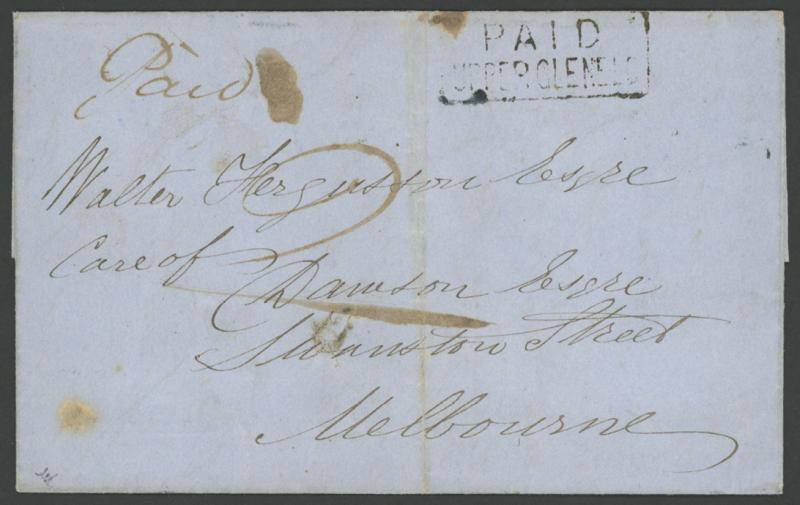 Paid
PAID
UPPER GLENELG
Walter Fergusson Esqre
2
Care of
Dawson Esqre
Swanston Street
Melbourne